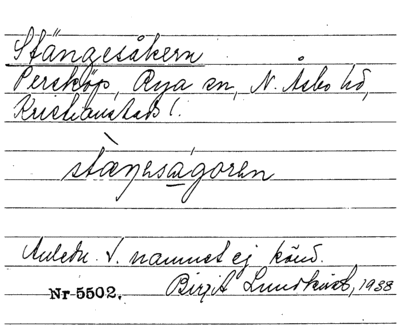 Stängesåkern
Perstöp, Rya sn, N. Åsbo hd,
Kristianstads l.
stæŋəsågorən
Anledn. t. namnet ej känd.
Nr 5502. Birgit Lundkvist, 1938